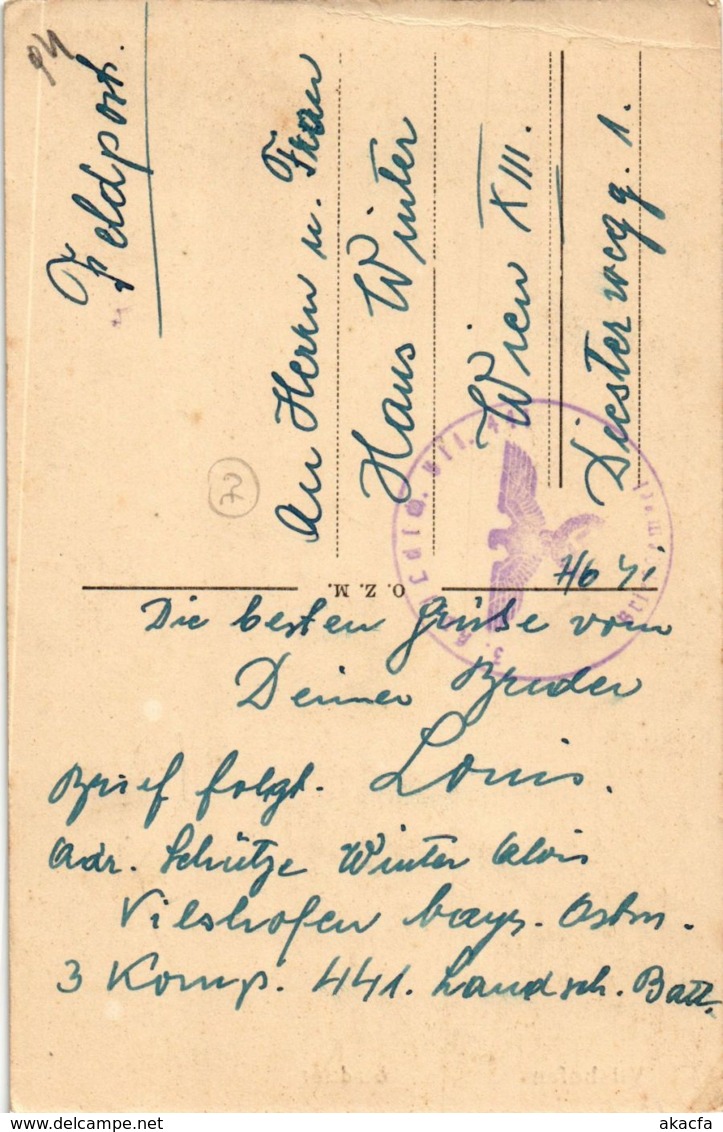 94
Feldpost.
An Herrn u. Frau
Hans Winter
Wien XIII.
Diesterwegg. 1.
70
O. Z. M.
Die besten Grüße vom
Deinen Bruder
Brief folgt. Louis.
Adr. Schütze Winter Alois
Vilshofen bayr. Ostm.
3 Komp. 441. Landsch. Batt.
akpool.de
akacfa